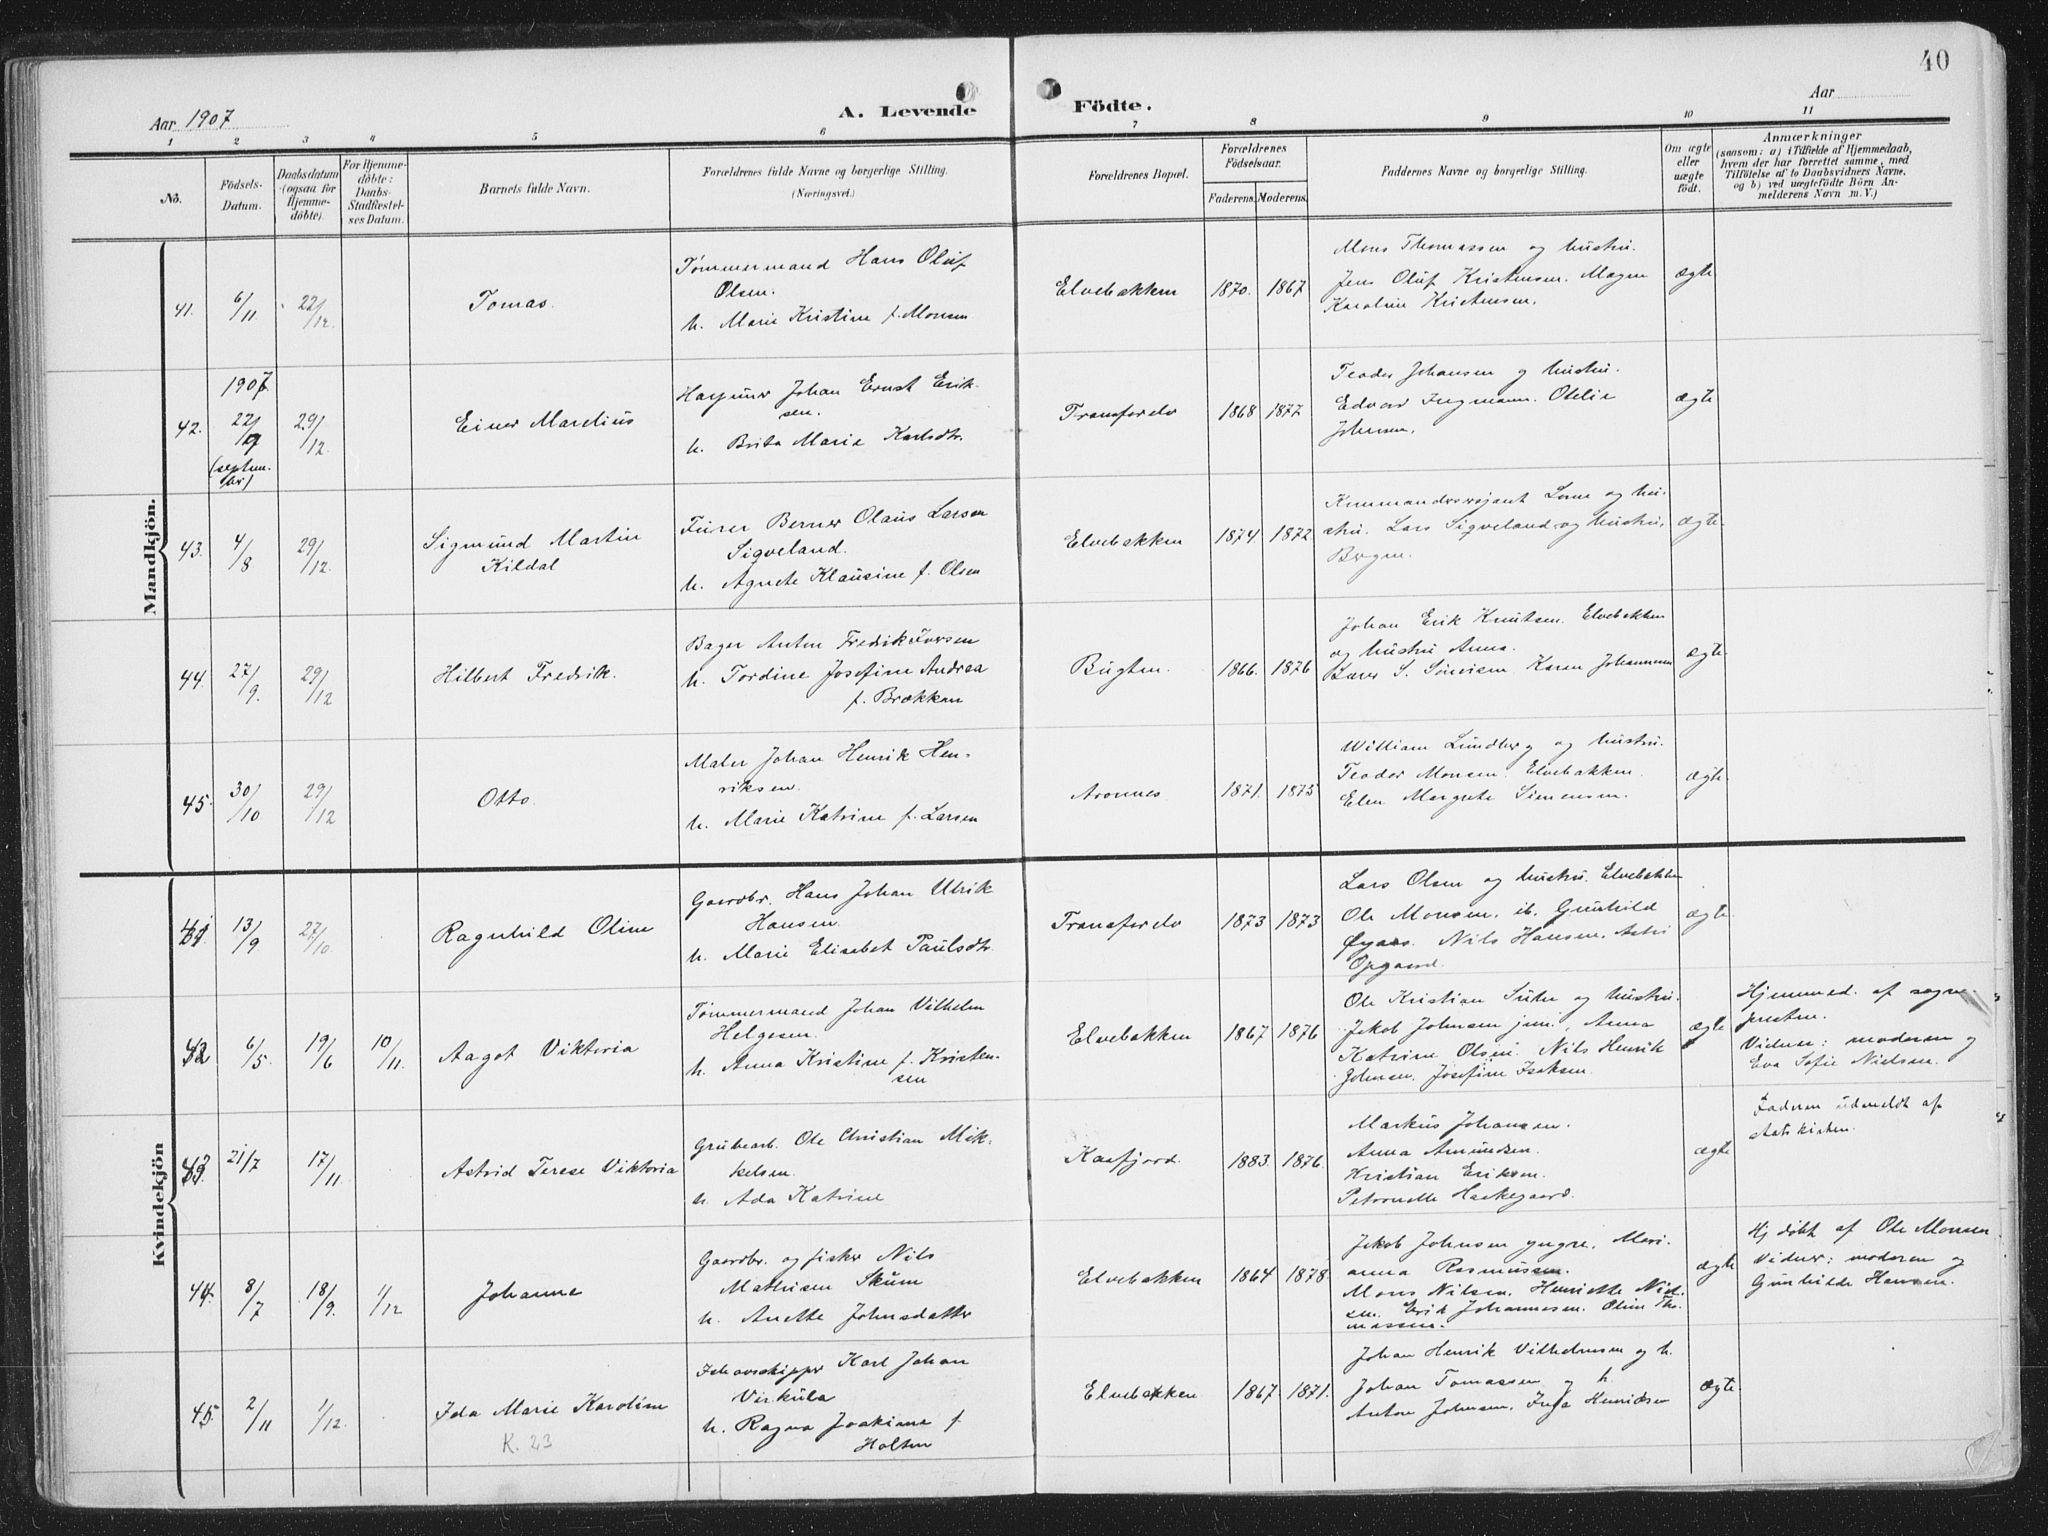 40
Aar 1907
A. Levende
Födte.
Aar
1 2 3 4 5 6 7 8 9 10 11
No.
Födsels-
Datum.
Daabsdatum
(ogsaa for
Hjemme-
döbte).
For Hjemme-
döbte:
Daabs-
Stadfæstel-
ses Datum.
Barnets fulde Navn.
Forældrenes fulde Navne og borgerlige Stilling.
(Næringsvei.)
Forældrenes Bopæl.
Forældrenes
Födselsaar.
Faderens. Moderens.
Faddernes Navne og borgerlige Stilling.
Om ægte
eller
uægte
født.
Anmærkninger
(saasom: a) i Tilfælde af Hjemmedaab,
hvem der har forrettet samme, med
Tilföielse af to Daabsvidners Navne,
og b) ved uægtefödte Börn An-
melderens Navn m. V.)
Mandkjön.
41. 6/11 22/12. Tomas.
Tømmermand Hans Oluf
Olsen.
h. Marie Kristine f. Monsen
Elvebakken 1870. 1867
Mons Thomassen og hustru.
Jens Oluf Kristensen. Magna
Karoline Kristensen.
ægte
1907.
42. 22/9 29/12.
(septem-
ber)
Einer Mardius
Johan Ernst Erik-
sen.
h. Brita Marie Karlsdtr.
Transfordv 1868 1877
Teodor Johansen og hustru.
Edvar Ingmann. Otelie
Johnsen.
ægte
43. 4/8 29/12. Sigmund Martin
Kildal
Furer Berner Olaus Larsen
Sigveland.
h. Agnete Klausine f. Olsen
Elvebakken 1874. 1872
Kommandersrsjant Lorne og hu-
stru. Lars Sigveland og hustru,
Bergen.
ægte
44. 27/9. 29/12 Hilbert Fredrik.
Bager Anton Fredrik Iversen
h. Tordine Josefine Andrea
f. Brækkan
Bugten. 1866. 1876
Johan Erik Knutsen. Elvebakken
og hustru Anna.
Lærer S. Karen Johannesen
ægte
45. 30/10 29/12 Otto.
Maler Johan Henrik Hen-
riksen.
h. Marie Katrine f. Larsen
Aronnes 1871. 1875
William Lundberg og hustru.
Teodor Monsen. Elvebakken.
Elen Margrete Simensen.
ægte
Kvindekjön
41 13/9. 27/10. Ragnhild Oline
Gaardbr. Hans Johan Ulrik
Hansen
h. Marie Elisabet Paulsdtr.
Transfordv 1873 1873
Lars Olsen og hustru, Elvebakken
Ole Monsen, ib. Gunhild
Øyaas. Nils Hansen. Astri
Opgaard.
ægte
42 6/5. 19/6 10/11. Aagot Viktoria
Tømmermand Johan Vilhelm
Helgesen.
h. Anna Kristine f. Kristen-
sen
Elvebakken 1867 1876
Ole Kristian Suhr og hustru.
Jakob Johnsen jun., Anna
Katrine Olsen. Nils Henrik
Johnsen, Josefine Isaksen.
ægte
Hjemmed. af sogne-
presten.
Vidner: moderen og
Eva Sofie Nielsen.
43. 21/7 17/11 Astrid Terese Viktoria
Grubearb. Ole Christian Mik-
kelsen.
h. Ada Katrine
Kaafjord. 1883. 1876.
Markus Johansen.
Anna Amundsen.
Kristian Eriksen.
Petronelle Haakegaard.
ægte
Faderen udmeldt af
statskirken.
44. 8/7 18/9. 1/12 Johanna
Gaardbr. og fisker Nils
Mathisen Skum
h. Anette Johnsdatter
Elvebakken 1864 1878.
Jakob Johnsen yngre, Mari-
anna Rasmussen.
Mons Nilsen, Henriette Niel-
sen. Erik Johannesen. Oline Tho-
massen.
ægte
Hj døbt af Ole Monsen
Vidner: moderen og
Gunhilde Hansen.
45. 2/11 1/12. Ida Marie Karoline
K. 23
Karl Johan
Virkula
h. Ragna Joakima f.
Holten
Elvebakken 1867. 1871.
Johan Henrik Vilhelmsen og h.
Johan Tomassen og h.
Anton Johnsen, Inga Henriksen
ægte.